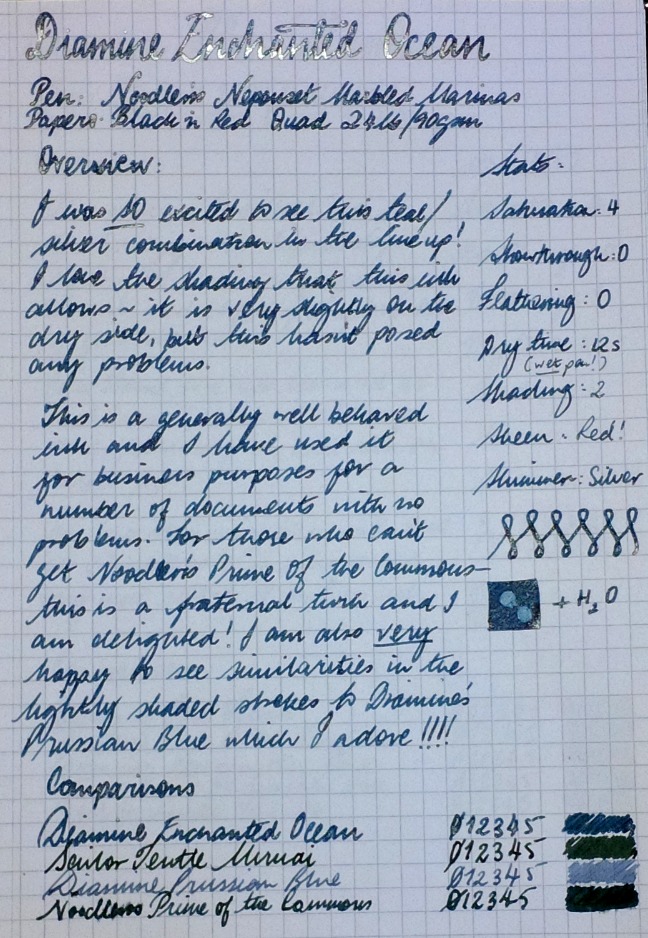 Diamine Enchanted Ocean
Pen: Noodlers Neponset Marbled Marinas
Paper: Black n Red Quad 24lb/90gsm
Overview:
I was SO excited to see this teal/
silver combination in the line up!
I love the shading that this ink
allows ~ it is very slightly on the
dry side, but this hasn't posed
any problems.
This is a generally well behaved
ink and I have used it
for business purposes for a
number of documents with no
problems. For those who can't
get Noodler's Prime Of the Commons—
this is a fraternal twin and I
am delighted! I am also very
happy to see similarities in the
lightly shaded strokes to Diamine's
Prussian Blue which I adore!!!!
Stats:
Saturation: 4
Showthrough: 0
Feathering: 0
Dry time: 12s
(wet pen!)
Shading: 2
Sheen - Red!
Shimmer: Silver
+ H2O
Comparisons
Diamine Enchanted Ocean 012345
Sailor Tentle Miruai 012345
Diamine Prussian Blue 012345
Noodlers Prime of the Commons 012345